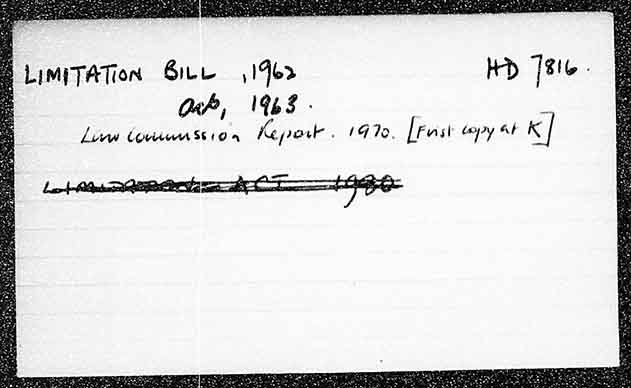 LIMITATION BILL, 1962 HD 7816.
Act, 1963.
Law Commission Report. 1970. [First copy at K]
LIMITATION ACT 1980